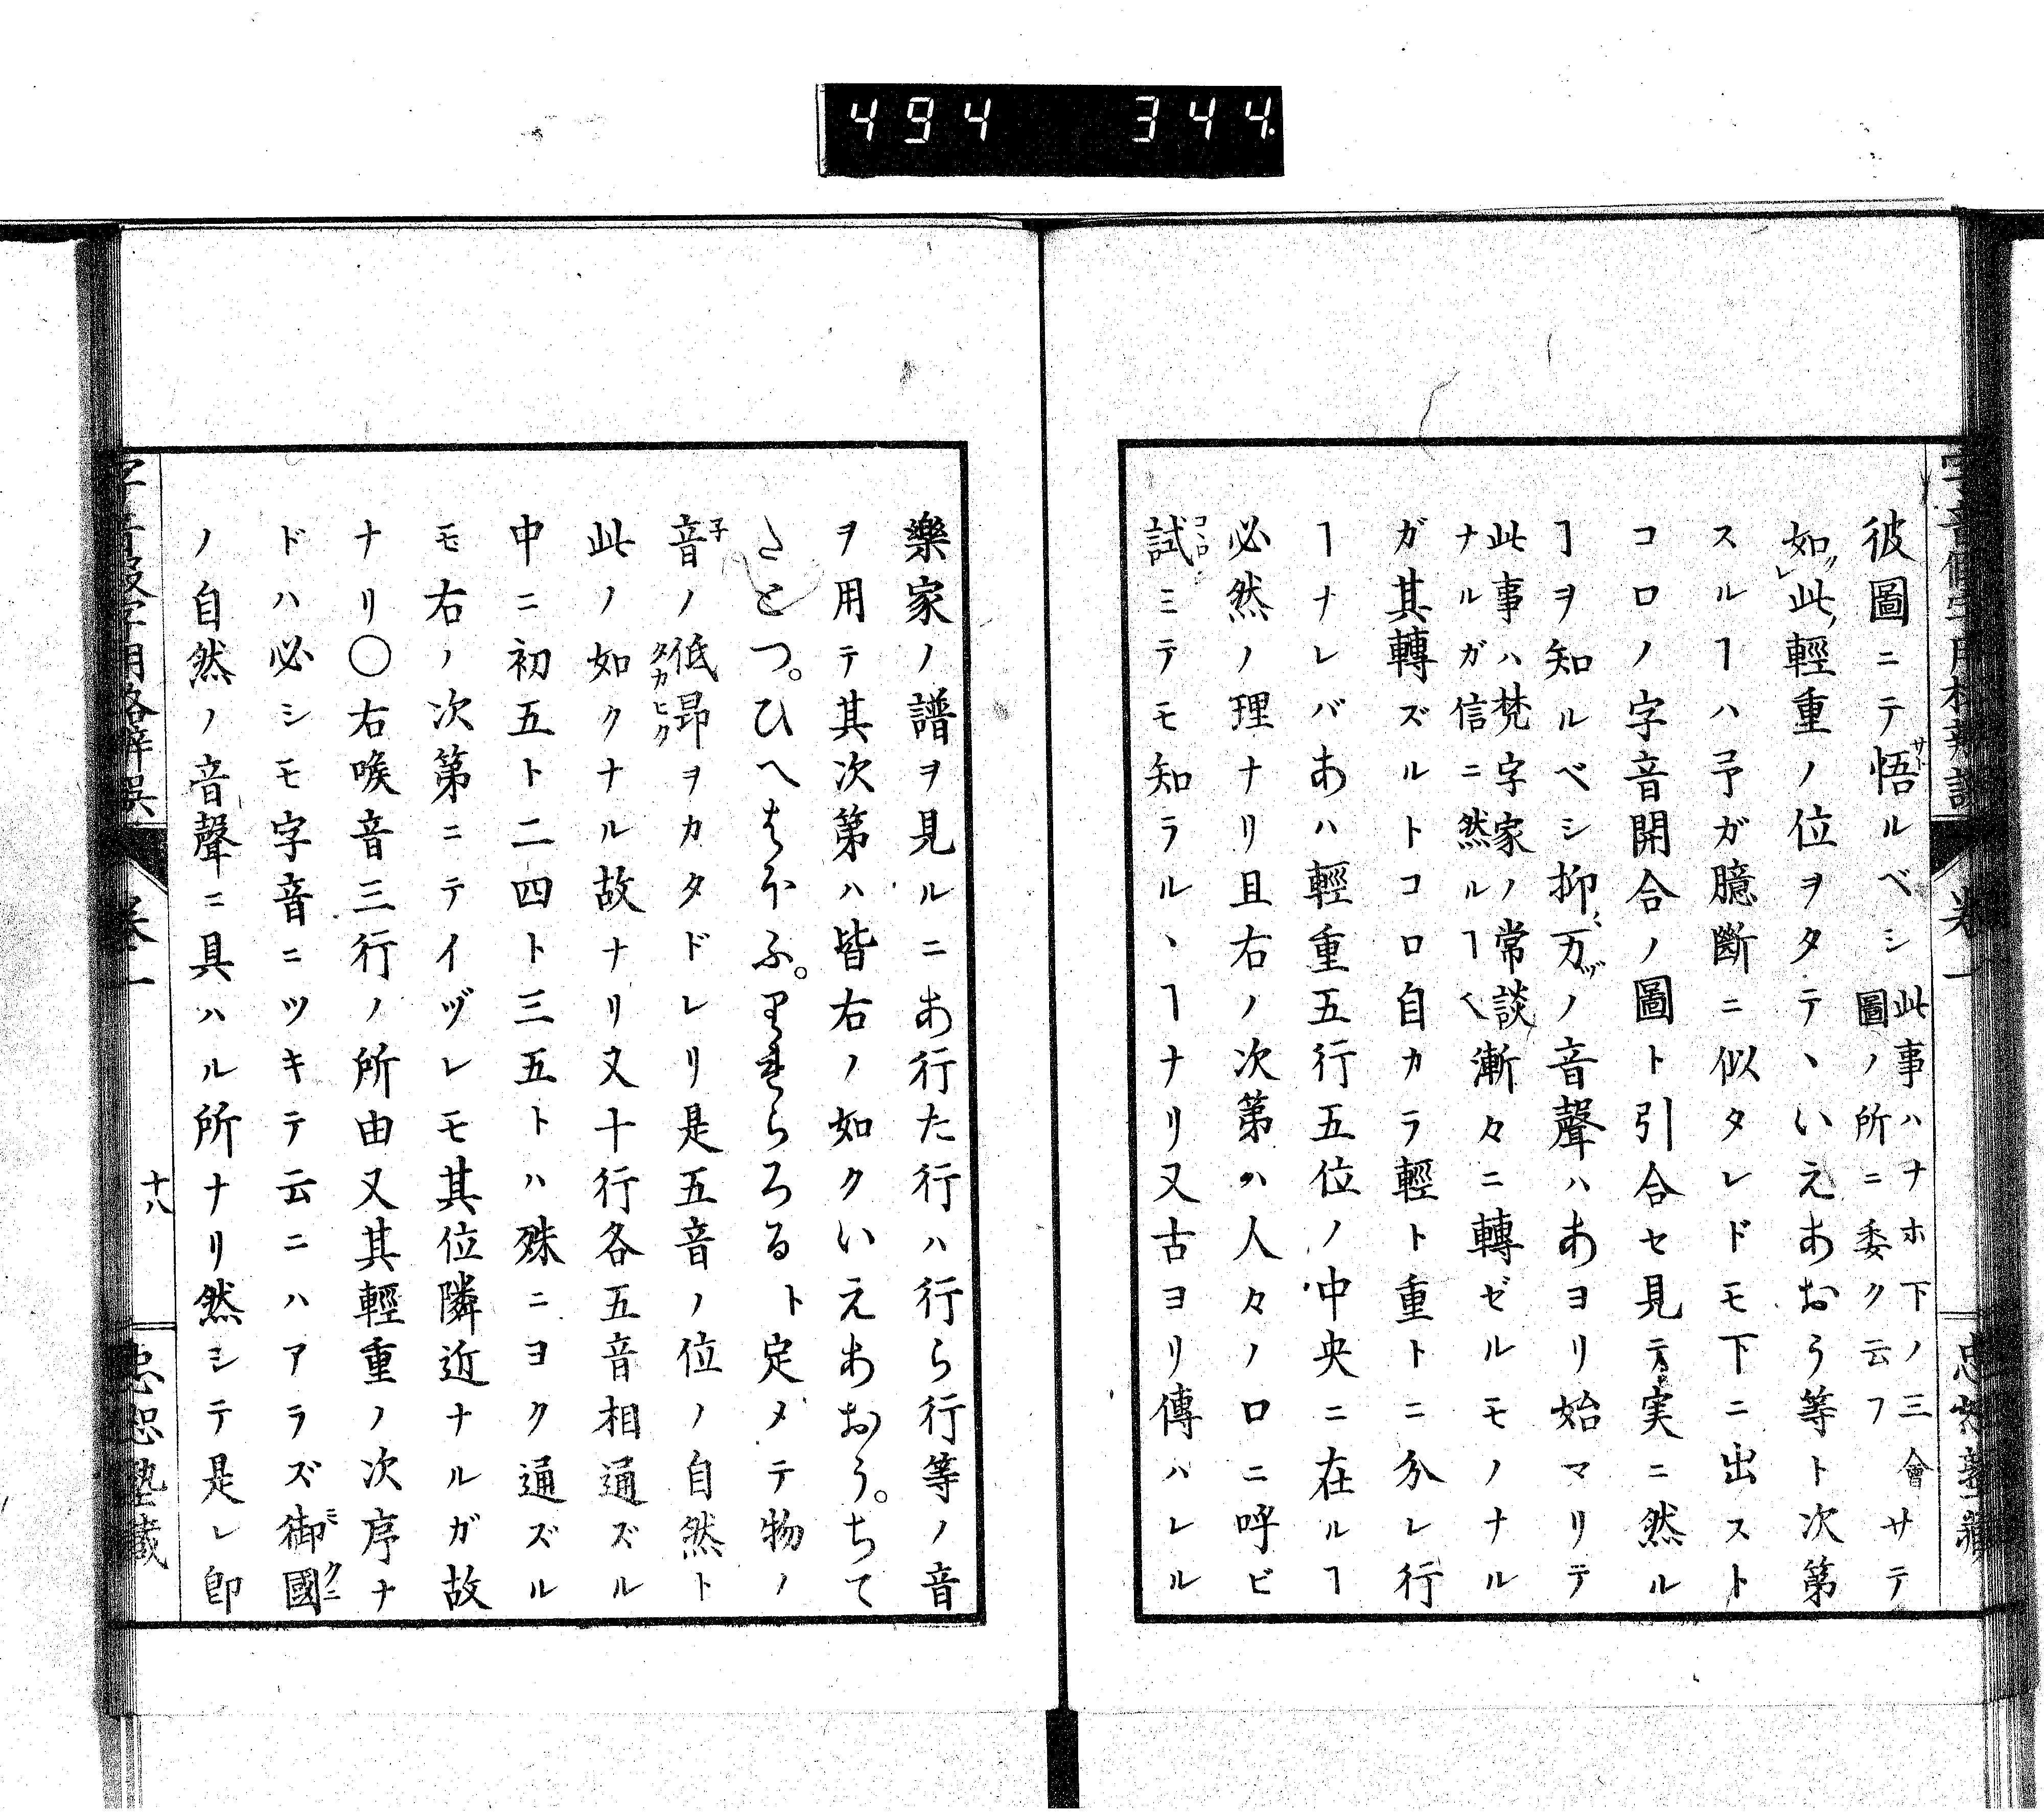 494 344
彼圖ニテ悟ルベシ此事ハナホ下ノ三會圖ノ所ニ委ク云フサテ
如此輕重ノ位ヲタテヽいえあおう等ト次第
スルヿハ予ガ臆斷ニ似タレドモ下ニ出スト
コロノ字音開合ノ圖ト引合セ見テ実ニ然ル
ヿヲ知ルベシ抑万ノ音聲ハあヨリ始マリテ
此事ハ梵字家ノ常談ナルガ信ニ然ルヿ也漸々ニ轉ゼルモノナル
ガ其轉ズルトコロ自カラ輕ト重トニ分レ行
ヿナレバあハ輕重五行五位ノ中央ニ在ルヿ
必然ノ理ナリ且右ノ次第ハ人々ノ口ニ呼ビ
試ミテモ知ラルヽヿナリ又古ヨリ傳ハレル
樂家ノ譜ヲ見ルニあ行た行ハ行ら行等ノ音
ヲ用テ其次第ハ皆右ノ如クいえあおう。ちて
たとつ。ひへはほふ。りれらろるト定メテ物ノ
音ノ低昻ヲカタドレリ是五音ノ位ノ自然ト
此ノ如クナル故ナリ又十行各五音相通ズル
中ニ初五ト二四ト三五トハ殊ニヨク通ズル
モ右ノ次第ニテイヅレモ其位隣近ナルガ故
ナリ〇右喉音三行ノ所由又其輕重ノ次序ナ
ドハ必シモ字音ニツキテ云ニハアラズ御國
ノ自然ノ音聲ニ具ハル所ナリ然シテ是レ卽
卷一
十八
忠恕塾藏